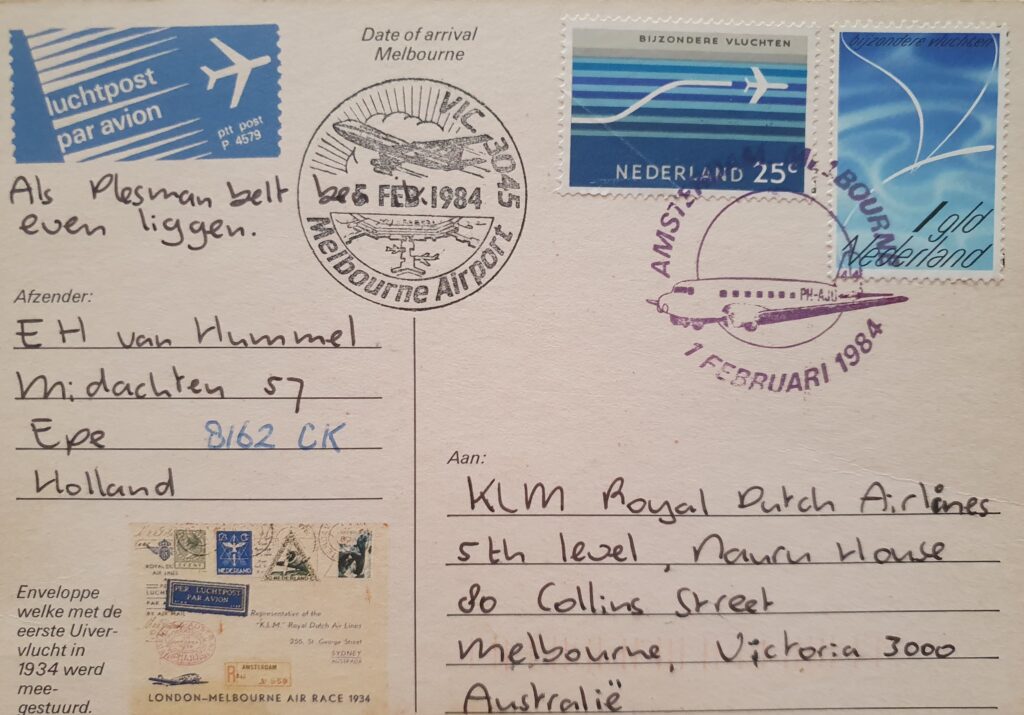 luchtpost
par avion
ptt post
P 4579
Date of arrival
Melbourne
VIC. 3045
5 FEB. 1984
Melbourne Airport
BIJZONDERE VLUCHTEN
NEDERLAND 25c
bijzondere vluchten
1 gld
Nederland
AMSTERDAM MELBOURNE
PH-AJU
1 FEBRUARI 1984
Als Plesman belt
even liggen.
Afzender:
E H van Hummel
Midachten 57
Epe 8162 CK
Holland
Aan:
KLM Royal Dutch Airlines
5th level, Nauru House
80 Collins Street
Melbourne, Victoria 3000
Australië
Enveloppe
welke met de
eerste Uiver-
vlucht in
1934 werd
mee-
gestuurd.
NEDERLAND
PER LUCHTPOST
PAR AVION
Representative of the
"K.L.M." Royal Dutch Air Lines
255, St. George Street
SYDNEY
AUSTRALIA
R AMSTERDAM
LONDON-MELBOURNE AIR RACE 1934